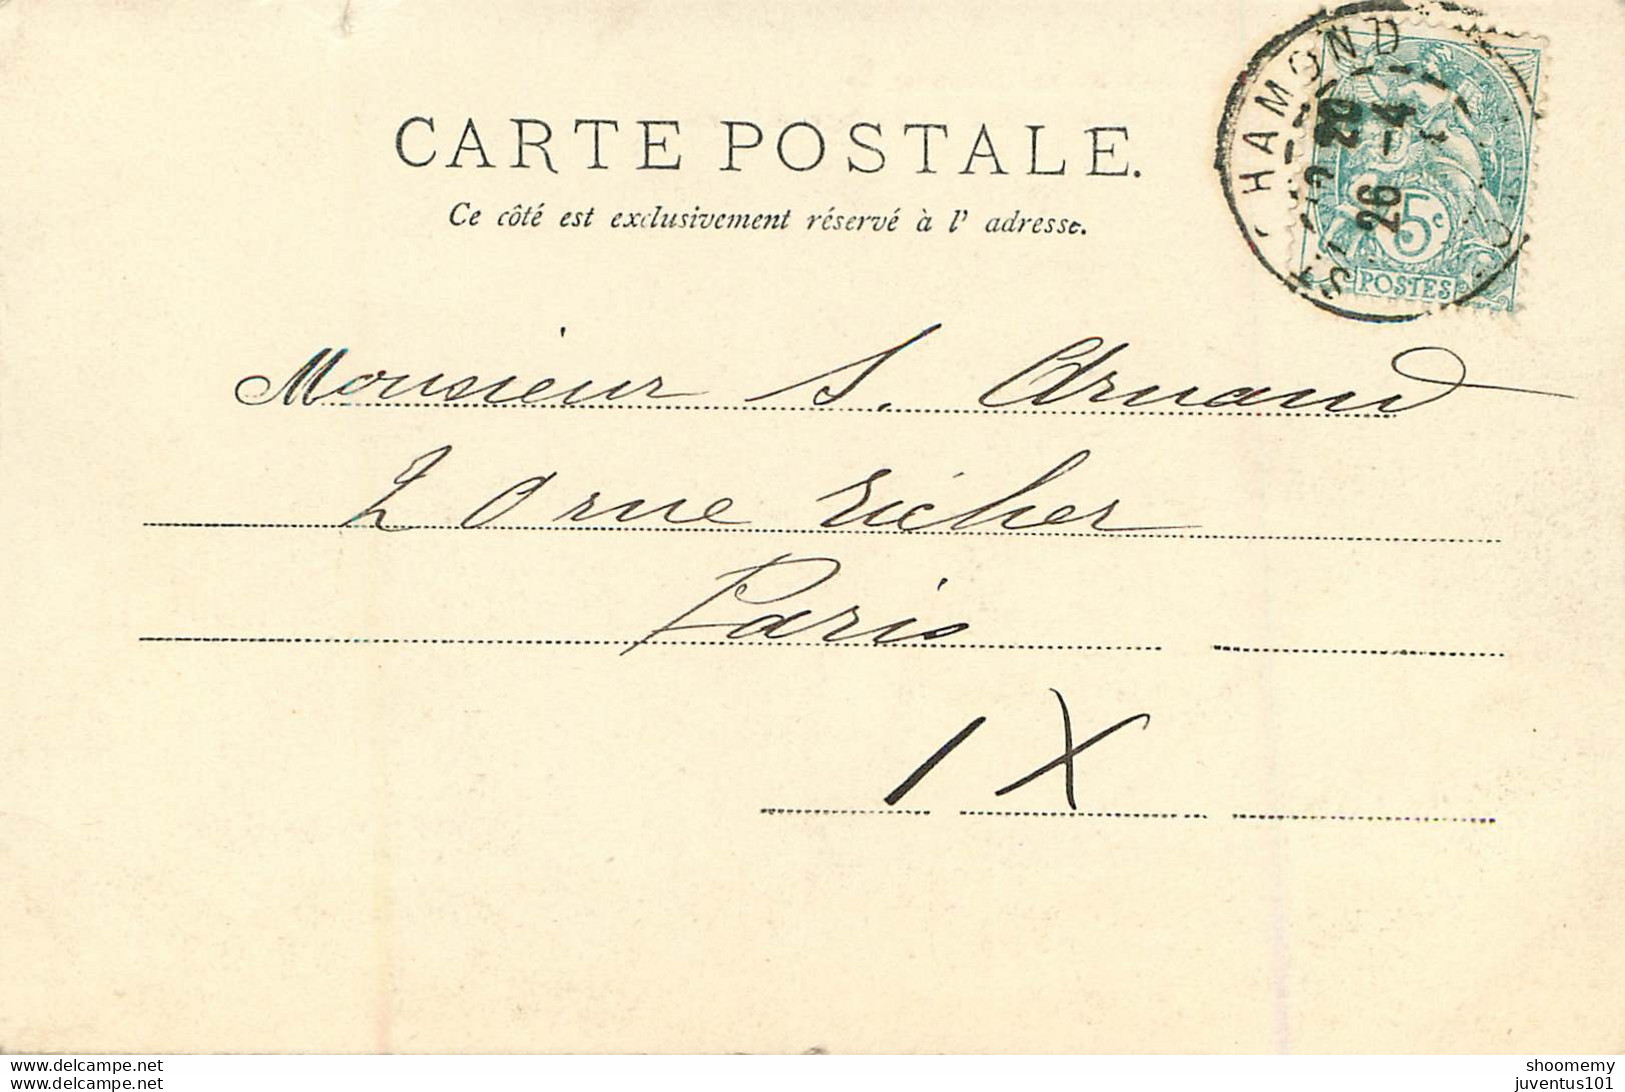 CARTE POSTALE.
Ce côté est exclusivement réservé à l' adresse.
ST CHAMOND
20
26 -4
5c
POSTES
Monsieur S. Arnaud
20 rue Richer
Paris
IX
www.delcampe.net
shoomemy
www.delcampe.net
juventus101